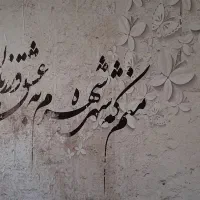 منم که شهره شهرم به عشق ورزیدن